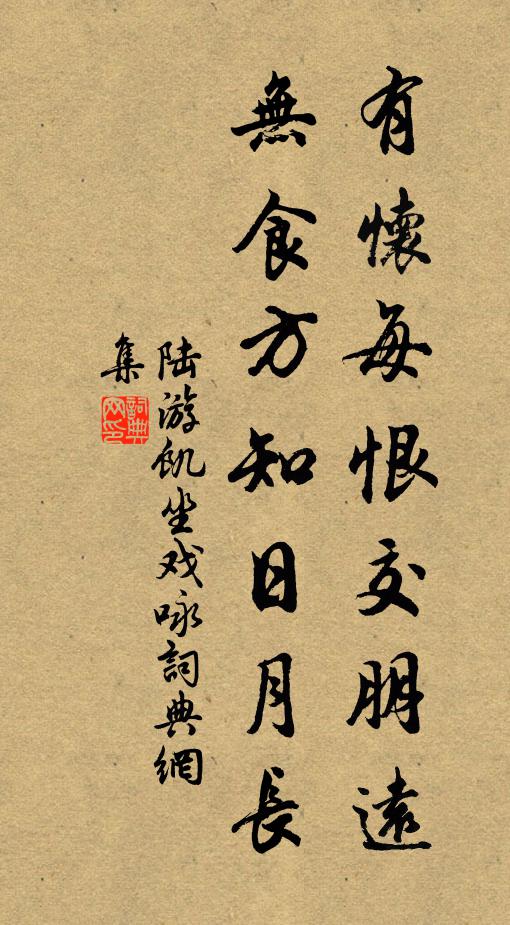 有懷每恨交朋遠
無食方知日月長
陆游飢坐戏咏詞典網
集
詞典
网印